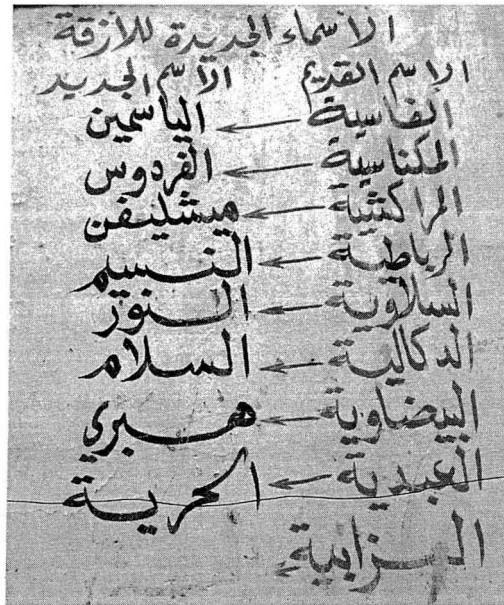 الأسماء الجديدة للأزقة
الاسم القديم الاسم الجديد
الفاسية ← الياسمين
المكناسية ← الفردوس
المراكشية ← ميشليفن
الرباطية ← النسيم
السلاوية ← النور
الدكالية ← السلام
البيضاوية ← هبري
العبدية ← الحرية
المزابية ←